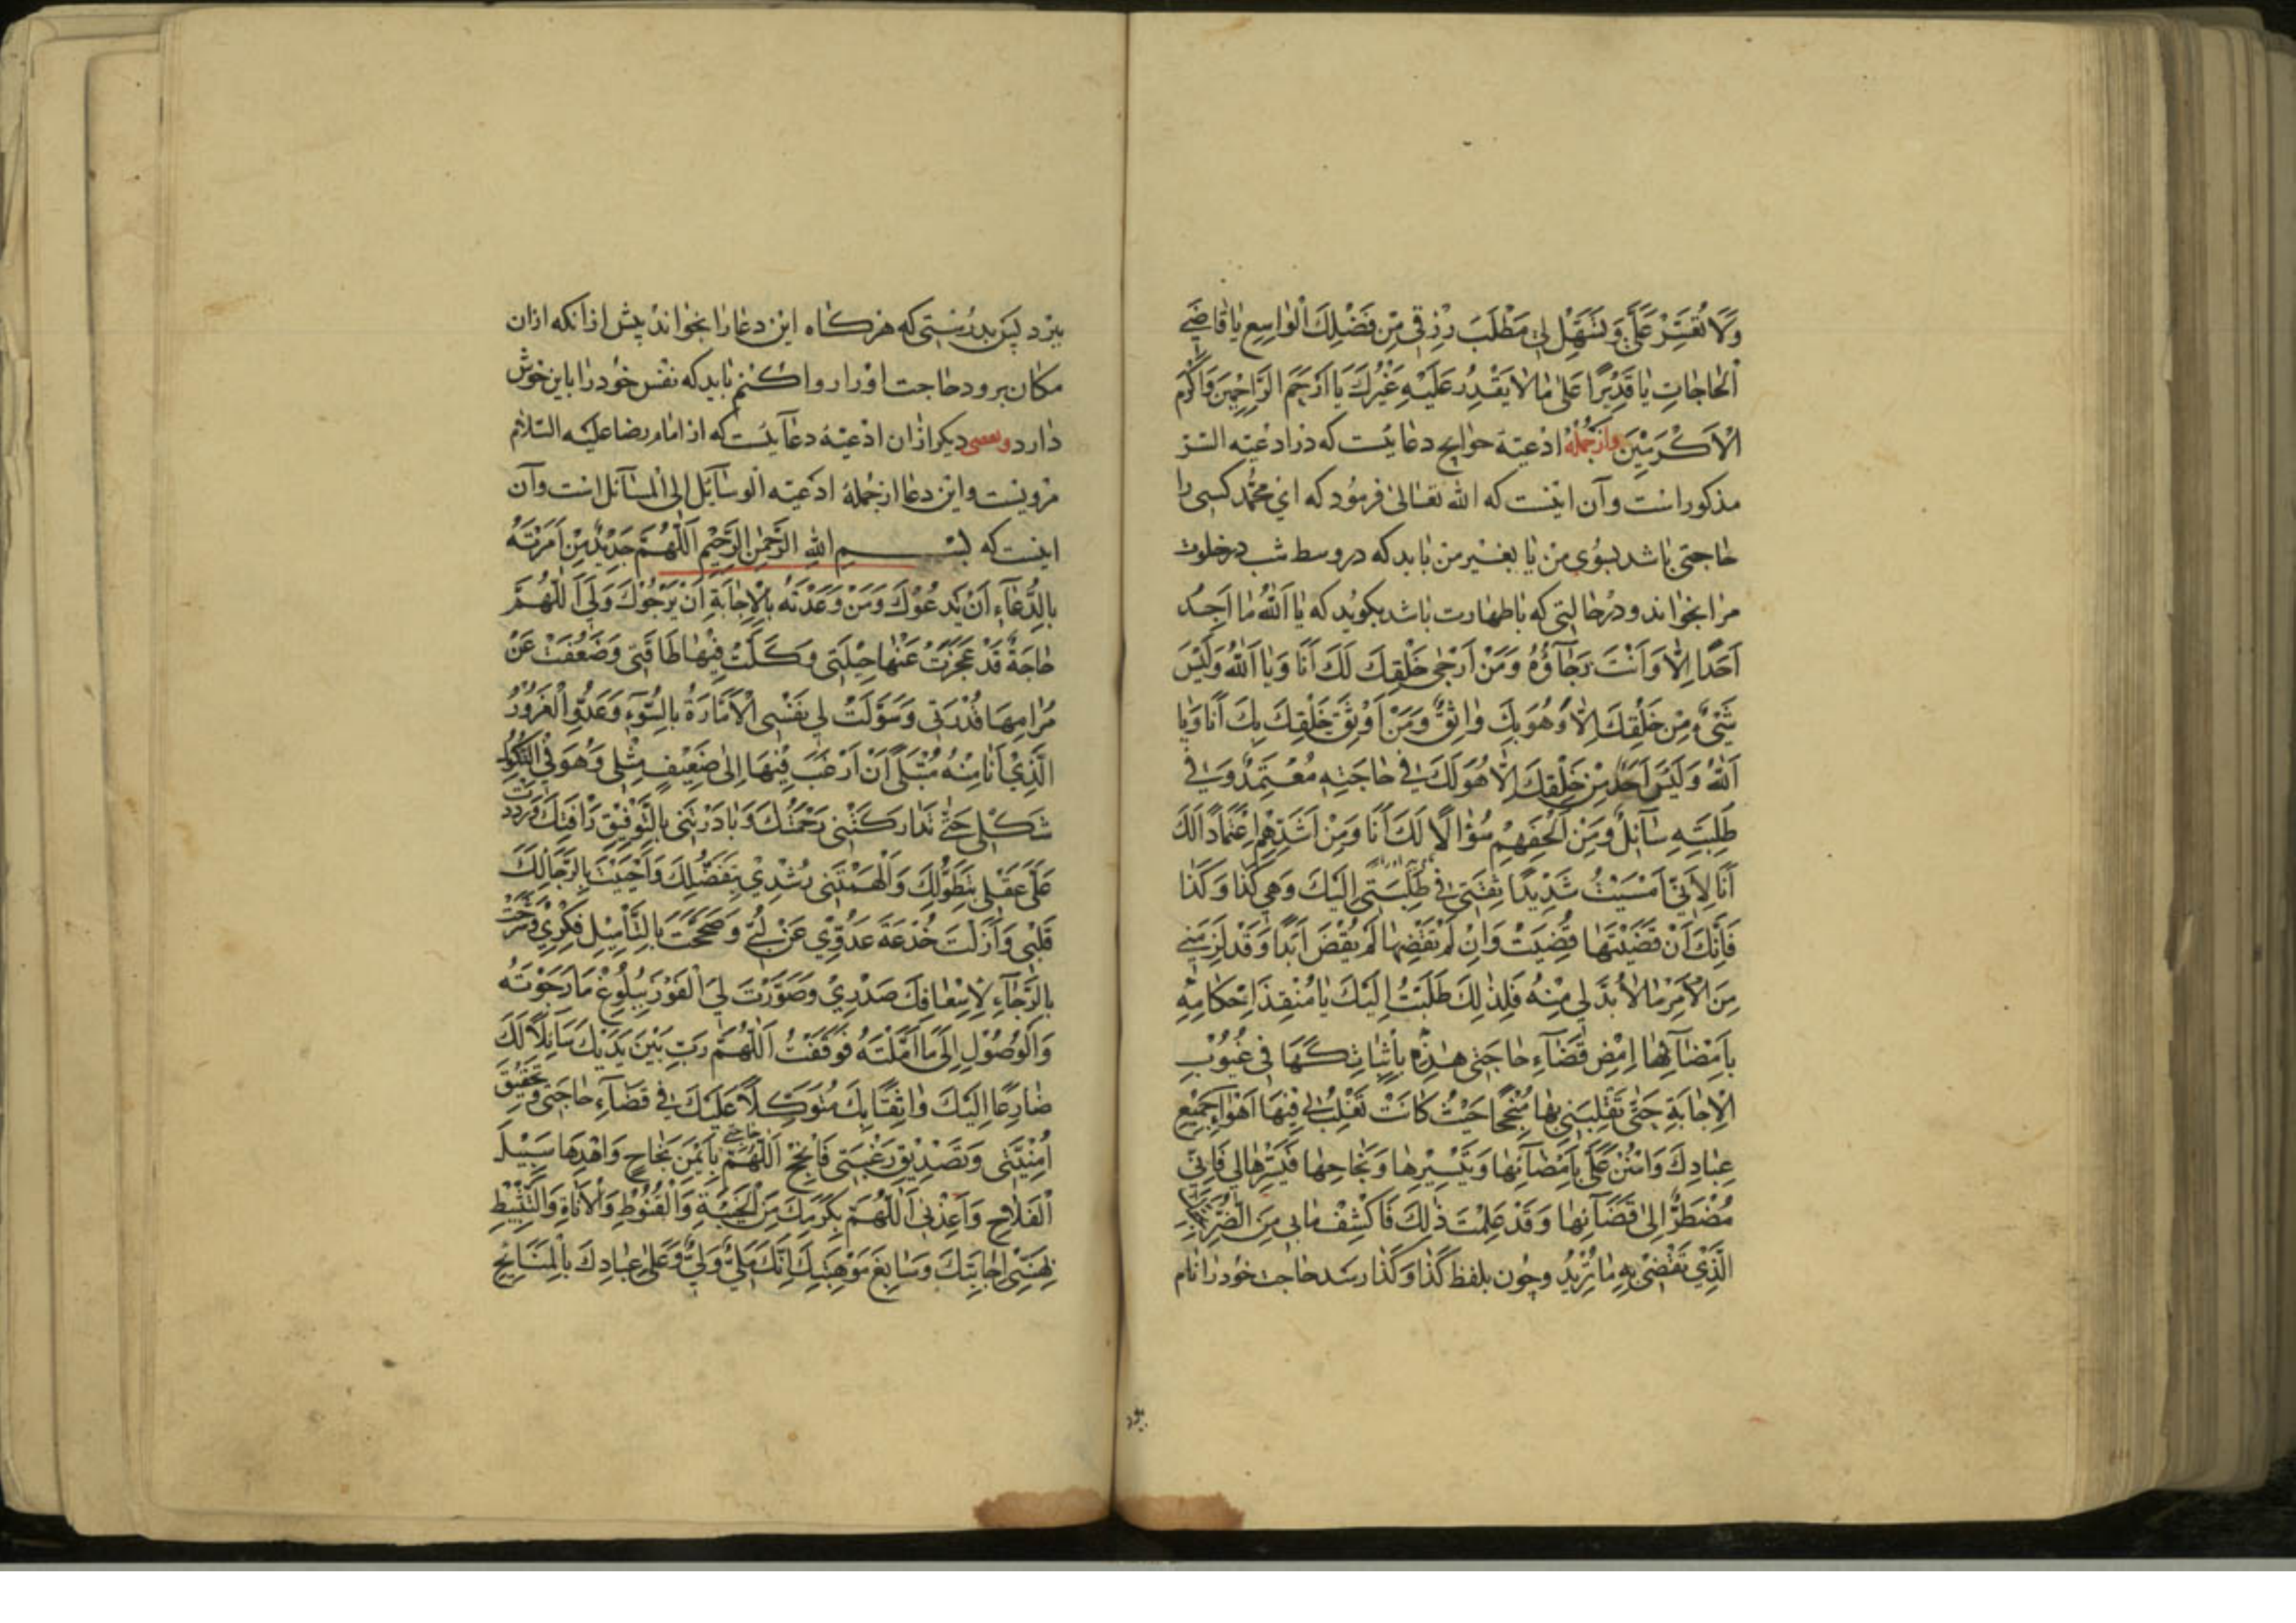 وَلَا تُقَتِّرْ عَلَيَّ وَتُسَهِّلْ لِي مَطْلَبَ رِزْقِي مِنْ فَضْلِكَ الْوَاسِعِ يَا قَاضِيَ
الْحَاجَاتِ يَا قَدِيْرًا عَلَى مَا لَا يَقْدِرُ عَلَيْهِ غَيْرُكَ يَا اَرْحَمَ الرَّاحِمِيْنَ وَاَكْرَمَ
الْاَكْرَمِيْنَ وازجمله ادعیهٔ حوایج دعائیست که در ادعیه السّر
مذکور است و آن اینست که الله تعالی فرمود که ای محمّد کسی را
حاجتی باشد بسوی من یا بغیر من باید که در وسط شب در خلوت
مرا بخواند و در حالتی که با طهارت باشد بکوید که یَا اَللهُ مَا اَجِدُ
اَحَدًا اِلَّا وَاَنْتَ رَجَآؤُهُ وَمَنْ اَرْجٰی خَلْقِكَ لَكَ اَنَا وَيَا اَللهُ وَلَيْسَ
شَيْءٌ مِنْ خَلْقِكَ اِلَّا وَهُوَ بِكَ وَاثِقٌ وَمَنْ اَوْثَقُ خَلْقِكَ بِكَ اَنَا وَيَا
اَللهُ وَلَيْسَ اَحَدٌ مِنْ خَلْقِكَ اِلَّا هُوَ لَكَ فِي حَاجَتِهِ مُعْتَمِدٌ وَفِي
طَلِبَتِهِ سَآئِلٌ وَمِنْ اَلْحَفِهِمْ سُؤَالًا لَكَ اَنَا وَمِنْ اَشَدِّهِمْ اِعْتِمَادًا لَكَ
اَنَا لِاَنِّي اَمْسَيْتُ شَدِيْدًا ثِقَتِي فِي طَلِبَتِي اِلَيْكَ وَهِيَ كَذَا وَكَذَا
فَاِنَّكَ اَنْ قَضَيْتَهَا قُضِيَتْ وَاِنْ لَمْ تَقْضِهَا لَمْ يُقْضَ اَبَدًا وَقَدْ لَزِمَنِي
مِنَ الْاَمْرِ مَا لَا بُدَّ لِي مِنْهُ فَلِذٰلِكَ طَلَبْتُ اِلَيْكَ يَا مُنْفِذَ اَحْكَامِهِ
بِاِمْضَآئِهَا اِمْضِ قَضَآءَ حَاجَتِي هٰذِهِ بِاِثْبَاتِكَهَا فِي غُيُوْبِ
الْاِجَابَةِ حَتَّى تَقْلِبَنِي بِهَا مُنْجِحًا حَيْثُ كَانَتْ تَغْلِبُ لِي فِيْهَا اَهْوَآءَ جَمِيْعِ
عِبَادِكَ وَامْنُنْ عَلَيَّ بِاِمْضَآئِهَا وَتَيْسِيْرِهَا وَنَجَاحِهَا فَيَسِّرْهَا لِي فَاِنِّي
مُضْطَرٌّ اِلَى قَضَآئِهَا وَقَدْ عَلِمْتَ ذٰلِكَ فَاكْشِفْ مَا بِي مِنَ الضُّرِّ
الَّذِي تَقْضِي بِهِ مَا تُرِيْدُ و چون بلفظ كَذَا وَكَذَا رسد حاجت خود را نام
ببرد پس بدرستی که هر کاه این دعا را بخواند پیش از آنکه ازان
مکان برود حاجت او را روا کنم باید که نفس خود را باین خوش
دارد وبعضی دیکر ازان ادعیهٔ دعائیست که از امام رضا علیه السّلام
مرویست و این دعا ازجملهٔ ادعیه الوسآئل الی المسآئل است و آن
اینست که بسم الله الرَّحْمٰنِ الرَّحِيْمِ اَللّٰهُمَّ جَدِيْرٌ مَنْ اَمَرْتَهُ
بِالدُّعَآءِ اَنْ يَدْعُوْكَ وَمَنْ وَعَدْتَهُ بِالْاِجَابَةِ اَنْ يَرْجُوْكَ وَلِيَ اَللّٰهُمَّ
حَاجَةٌ قَدْ عَجَزَتْ عَنْهَا حِيْلَتِي وَكَلَّتْ فِيْهَا طَاقَتِي وَضَعُفَتْ عَنْ
مَرَامِهَا قُدْرَتِي وَسَوَّلَتْ لِي نَفْسِي الْاَمَّارَةُ بِالسُّوْءِ وَعَدُوِّ الْغَرُوْرُ
الَّذِي اَنَا مِنْهُ مُبْتَلًى اَنْ اَرْغَبَ فِيْهَا اِلٰى ضَعِيْفٍ مِثْلِي وَهُوَ فِي النُّكُوْلِ
شَكْلِي حَتّٰى تَدَارَكَتْنِي رَحْمَتُكَ وَبَادَرَتْنِي بِالتَّوْفِيْقِ رَاْفَتُكَ وَرَدَدْتَ
عَلَيَّ عَقْلِي بِتَطَوُّلِكَ وَاَلْهَمْتَنِي رُشْدِي بِتَفَضُّلِكَ وَاَحْيَيْتَ بِالرَّجَآءِ لَكَ
قَلْبِي وَاَزَلْتَ خُدْعَةَ عَدُوِّي عَنْ لُبِّي وَصَحَّحْتَ بِالتَّاْمِيْلِ فِكْرِي وَشَرَحْتَ
بِالرَّجَآءِ لِاِسْعَافِكَ صَدْرِي وَصَوَّرْتَ لِيَ الْفَوْزَ بِبُلُوْغِ مَا رَجَوْتُهُ
وَالْوُصُوْلِ اِلٰى مَا اَمَّلْتُهُ فَوَقَفْتُ اَللّٰهُمَّ رَبِّ بَيْنَ يَدَيْكَ سَآئِلًا لَكَ
ضَارِعًا اِلَيْكَ وَاثِقًا بِكَ مُتَوَكِّلًا عَلَيْكَ فِي قَضَآءِ حَاجَتِي وَتَحْقِيْقِ
اُمْنِيَّتِي وَتَصْدِيْقِ رَغْبَتِي فَاَنْجِحْ اَللّٰهُمَّ حَاجَتِي بِاَيْمَنِ نَجَاحٍ وَاهْدِهَا سَبِيْلَ
الْفَلَاحِ وَاَعِذْنِي اَللّٰهُمَّ بِكَرَمِكَ مِنَ الْخَيْبَةِ وَالْقُنُوْطِ وَالْاَنَاةِ وَالتَّثْبِيْطِ
بِهَنِيْءِ اِجَابَتِكَ وَسَابِغِ مَوْهِبَتِكَ اِنَّكَ مَلِيٌّ وَلِيٌّ وَعَلَى عِبَادِكَ بِالْمَنَائِحِ